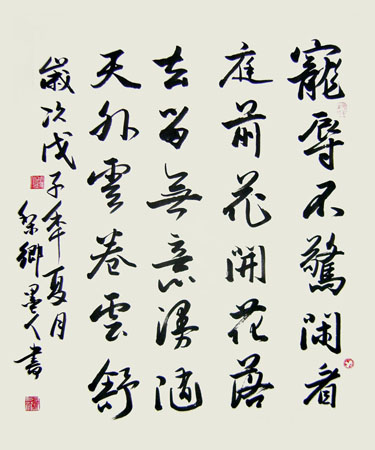 寵辱不驚閑看
庭前花開花落
去留無意漫隨
天外雲卷雲舒
歲次戊子年夏月
鄉墨人書